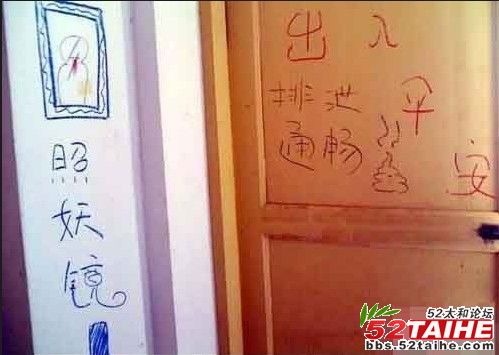 照妖镜
出入平安
排泄
通畅
52太和论坛
52TAIHE
bbs.52taihe.com